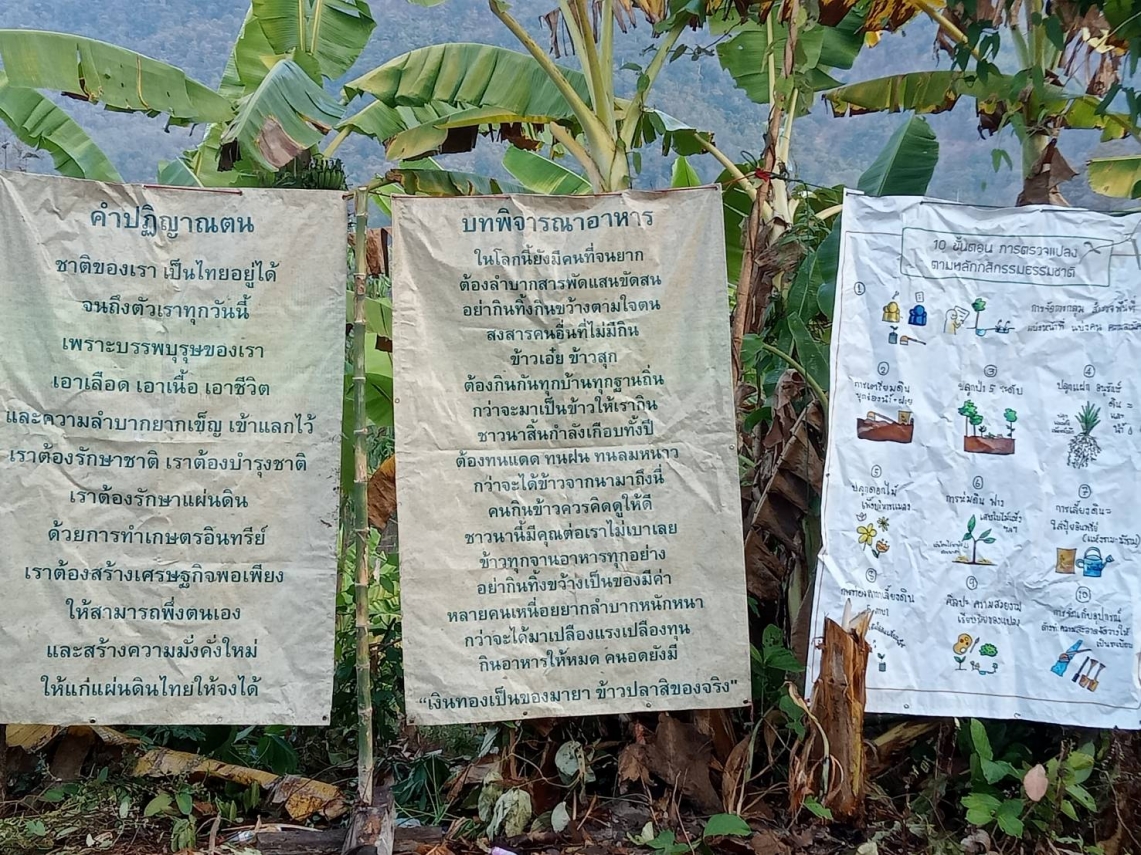 คำปฏิญาณตน
ชาติของเรา เป็นไทยอยู่ได้
จนถึงตัวเราทุกวันนี้
เพราะบรรพบุรุษของเรา
เอาเลือด เอาเนื้อ เอาชีวิต
และความลำบากยากเข็ญ เข้าแลกไว้
เราต้องรักษาชาติ เราต้องบำรุงชาติ
เราต้องรักษาแผ่นดิน
ด้วยการทำเกษตรอินทรีย์
เราต้องสร้างเศรษฐกิจพอเพียง
ให้สามารถพึ่งตนเอง
และสร้างความมั่งคั่งใหม่
ให้แก่แผ่นดินไทยให้จงได้
บทพิจารณาอาหาร
ในโลกนี้ยังมีคนที่จนยาก
ต้องลำบากสารพัดแสนขัดสน
อย่ากินทิ้งกินขว้างตามใจตน
สงสารคนอื่นที่ไม่มีกิน
ข้าวเอ๋ย ข้าวสุก
ต้องกินกันทุกบ้านทุกฐานถิ่น
กว่าจะมาเป็นข้าวให้เรากิน
ชาวนาสิ้นกำลังเกือบทั้งปี
ต้องทนแดด ทนฝน ทนลมหนาว
กว่าจะได้ข้าวจากนามาถึงนี่
คนกินข้าวควรคิดดูให้ดี
ชาวนานี้มีคุณต่อเราไม่เบาเลย
ข้าวทุกจานอาหารทุกอย่าง
อย่ากินทิ้งขว้างเป็นของมีค่า
หลายคนเหนื่อยยากลำบากหนักหนา
กว่าจะได้มาเปลืองแรงเปลืองทุน
กินอาหารให้หมด คนอดยังมี
“เงินทองเป็นของมายา ข้าวปลาสิของจริง”
10 ขั้นตอน การตรวจแปลง
ตามหลักกสิกรรมธรรมชาติ
①
②
การเตรียมดิน
③
ปลูกป่า 5 ระดับ
④
ปลูกแฝก
⑤
ปลูกดอกไม้
⑥
การห่มดิน ฟาง
เศษใบไม้แห้ง
⑦
การเลี้ยงดิน
ใส่ปุ๋ยอินทรีย์
⑧
⑨
ศิลปะ ความสวยงาม
⑩
การจัดเก็บอุปกรณ์